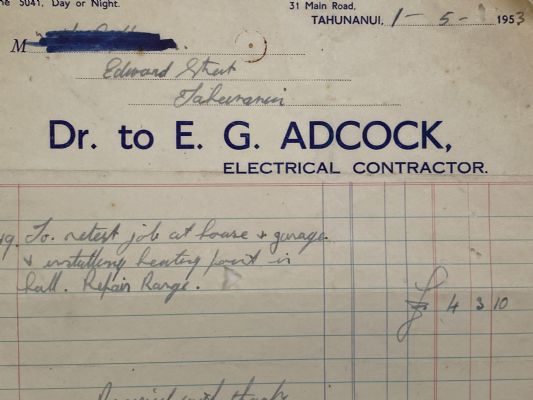 ne 5041, Day or Night.
31 Main Road,
TAHUNANUI, 1-5-1953
M
Edward Street
Tahunanui
Dr. to E. G. ADCOCK,
ELECTRICAL CONTRACTOR.
49. To. retest job at house & garage.
& installing heating point in
hall. Repair Range.
£ 4 3 10
Received with thanks